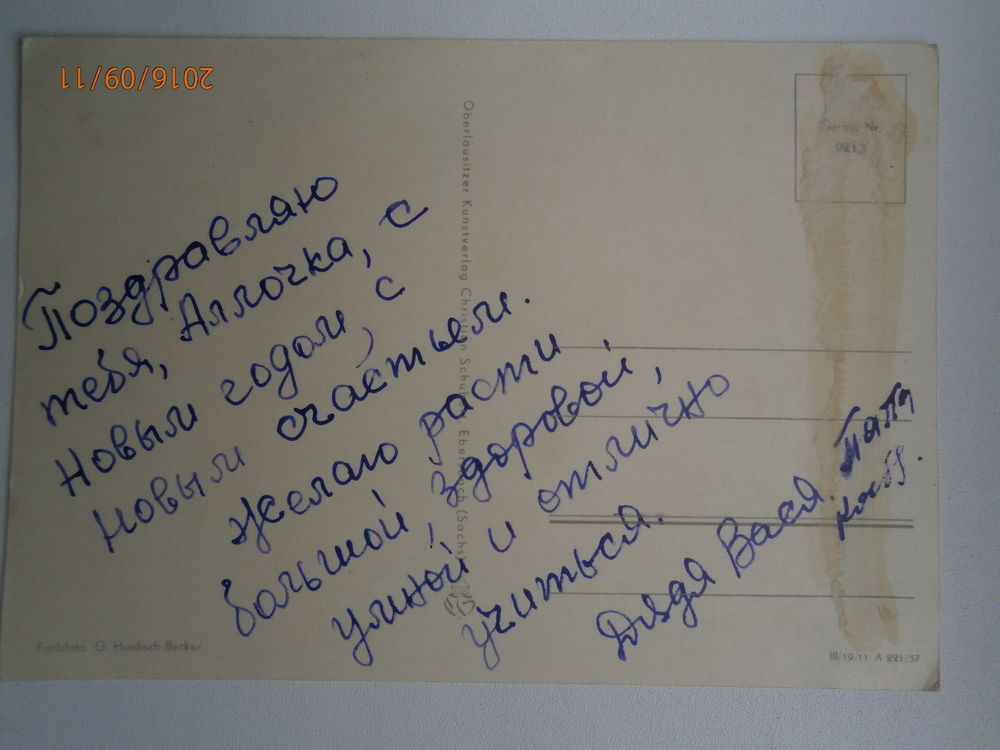 2016/09/11
Поздравляю
тебя, Аллочка, с
Новым годом, с
Новым счастьем.
Желаю расти
большой, здоровой,
умной и отлично
учиться.
Дядя Вася.
Oberlausitzer Kunstverlag Christian Schu Ebersbach (Sachs)
Nr.
Farbfoto G. Heidisch-Becker
III/19/11 A 221/57